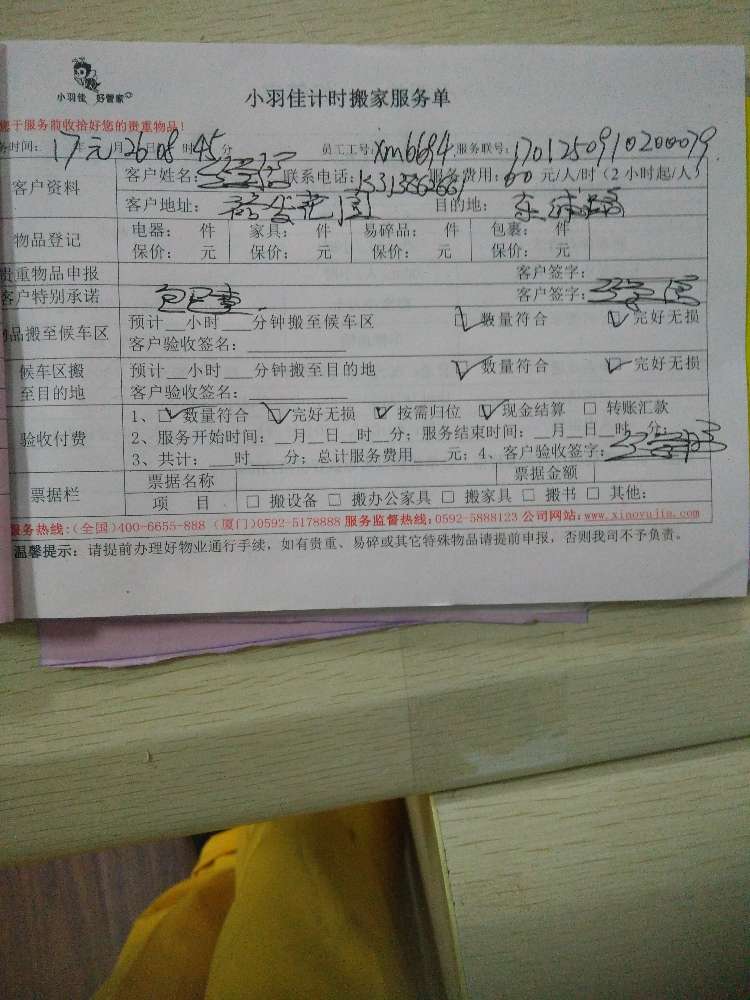 小羽佳 好管家
小羽佳计时搬家服务单
您于服务前收拾好您的贵重物品！
务时间：17年元月26日08时45分 员工工号：xm6694 服务联号：1701250910200079
客户资料 客户姓名： 联系电话： 服务费用：60元/人/时（2小时起/人）
客户地址： 花园 目的地：
物品登记 电器： 件 家具： 件 易碎品： 件 包裹： 件
保价： 元 保价： 元 保价： 元 保价： 元
贵重物品申报 客户签字：
客户特别承诺 客户签字：
物品搬至候车区 预计__小时___分钟搬至候车区 ☑数量符合 ☑完好无损
客户验收签名：
候车区搬至目的地 预计__小时___分钟搬至目的地 ☑数量符合 ☑完好无损
客户验收签名：
验收付费 1、☑数量符合 ☑完好无损 ☑按需归位 ☑现金结算 □转账汇款
2、服务开始时间：__月__日__时__分；服务结束时间：__月__日__时__分；
3、共计：___时___分；总计服务费用____元；4、客户验收签字：
票据栏 票据名称 票据金额
项 目 □搬设备 □搬办公家具 □搬家具 □搬书 □其他：
服务热线：(全国)400-6655-888 (厦门)0592-5178888 服务监督热线：0592-5888123 公司网站：www.xiaoyujia.com
温馨提示：请提前办理好物业通行手续，如有贵重、易碎或其它特殊物品请提前申报，否则我司不予负责。